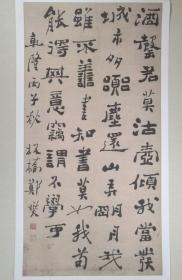 酒罄君莫沽壺傾我當發
城市多囂塵還山弄明月我
雖不善書知書莫如我苟
能得其意竊謂不學可
乾隆丙子 板橋鄭燮